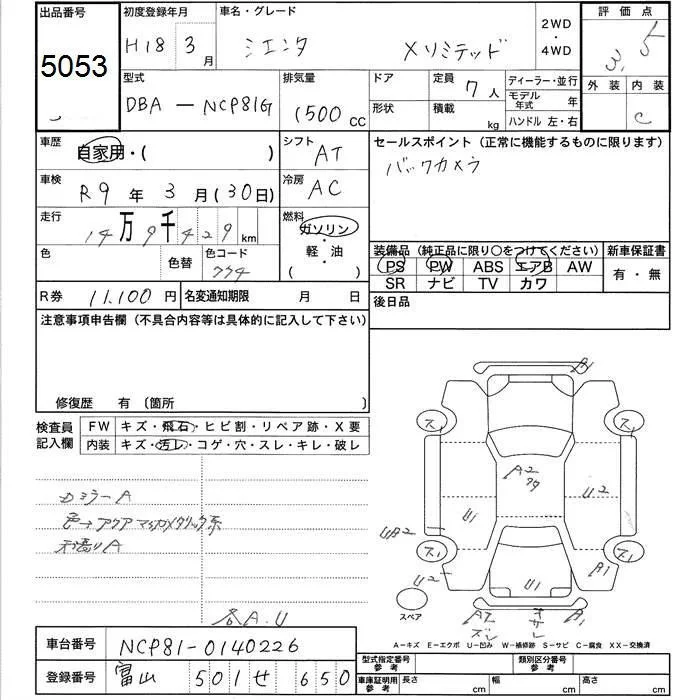 出品番号 初度登録年月 車名・グレード 2WD・4WD 評価点
5053 H18 3月 シエンタ Xリミテッド 3.5
型式 排気量 ドア 定員 7人 ディーラー・並行 外装 内装
DBA-NCP81G 1500cc 形状 積載 kg モデル年式 年 C
ハンドル 左・右
車歴 自家用・( ) シフト AT セールスポイント (正常に機能するものに限ります)
バックカメラ
車検 R9年3月(30日) 冷房 AC
走行 14万9千429km 燃料 ガソリン・軽油 ( )
装備品 (純正品に限り○をつけてください) 新車保証書
色 色替 色コード 774 PS PW ABS エアB AW 有・無
SR ナビ TV カワ
R券 11,100円 名変通知期限 月 日 後日品
注意事項申告欄 (不具合内容等は具体的に記入して下さい)
修復歴 有 〔箇所 〕
検査員記入欄 FW キズ・飛石・ヒビ割・リペア跡・X要
内装 キズ・汚レ・コゲ・穴・スレ・キレ・破レ
カミラーA
色→アクアマイカメタリック系
天張りA
各A.U
A2
U2
Ui
U1
スペア
A-キズ E-エクボ U-凹み W-補修跡 S-サビ C-腐食 XX-交換済
車台番号 NCP81-0140226
登録番号 富山 501 せ 650
型式指定番号 参考 類別区分番号 参考
車庫証明用 参考 長さ cm 幅 cm 高さ cm